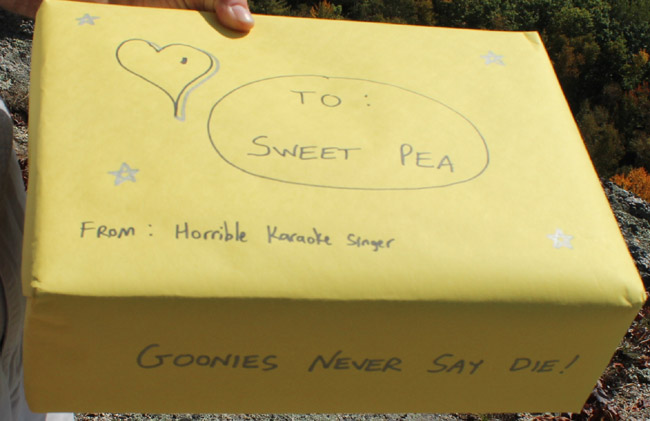 TO:
SWEET PEA
FROM: Horrible Karaoke Singer
GOONIES NEVER SAY DIE!